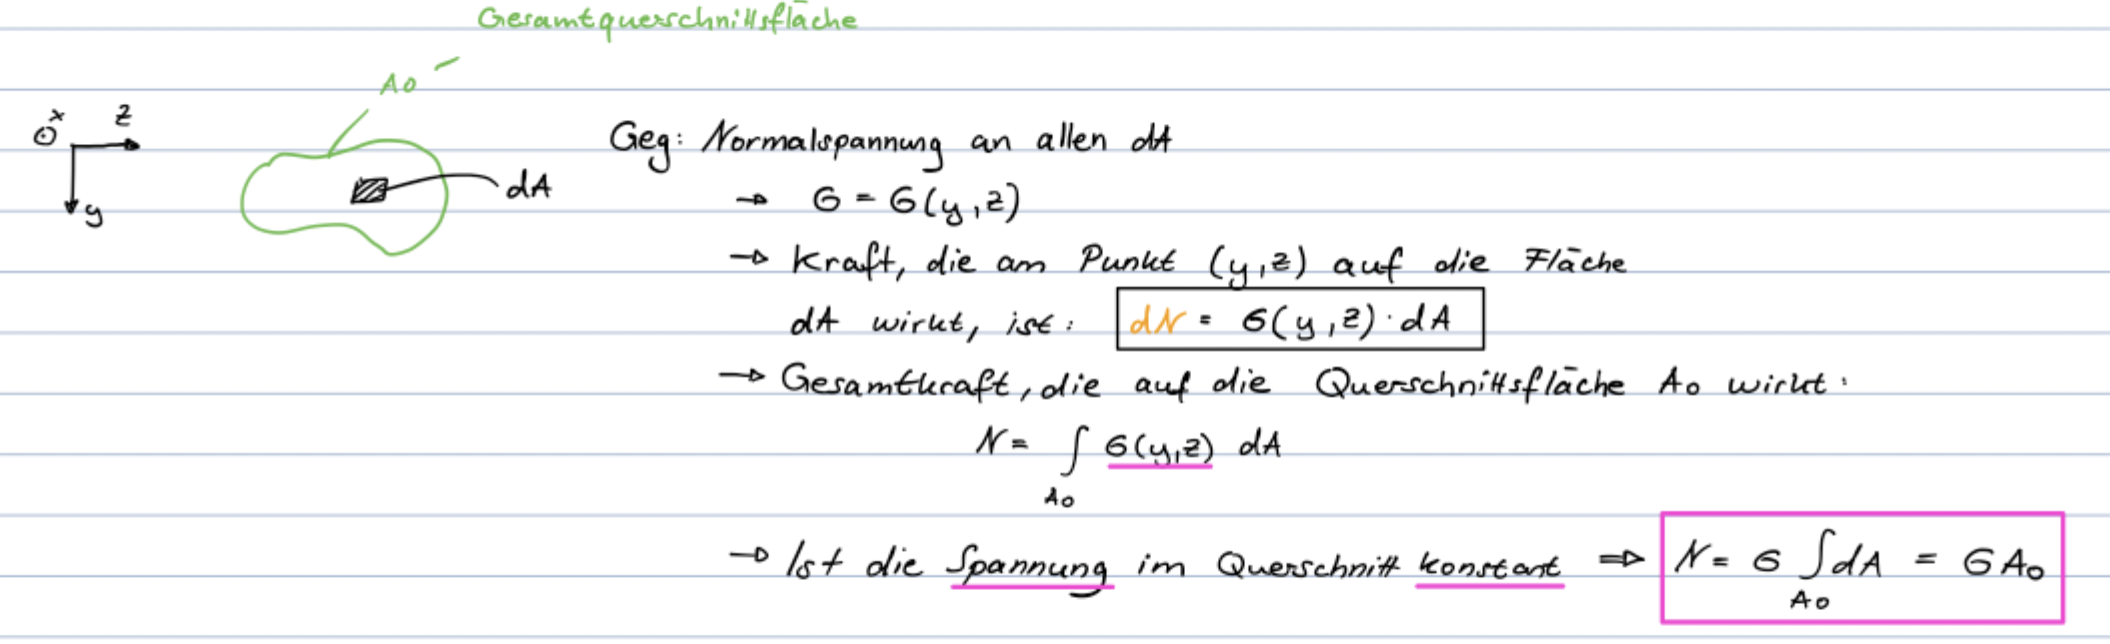 Gesamtquerschnittsfläche
A0
x
z
y
dA
Geg: Normalspannung an allen dA
→ σ = σ(y,z)
→ Kraft, die am Punkt (y,z) auf die Fläche
dA wirkt, ist: dN = σ(y,z)·dA
→ Gesamtkraft, die auf die Querschnittsfläche A0 wirkt:
N = ∫ σ(y,z) dA
A0
→ Ist die Spannung im Querschnitt konstant ⇒ N = σ ∫dA = σA0
A0